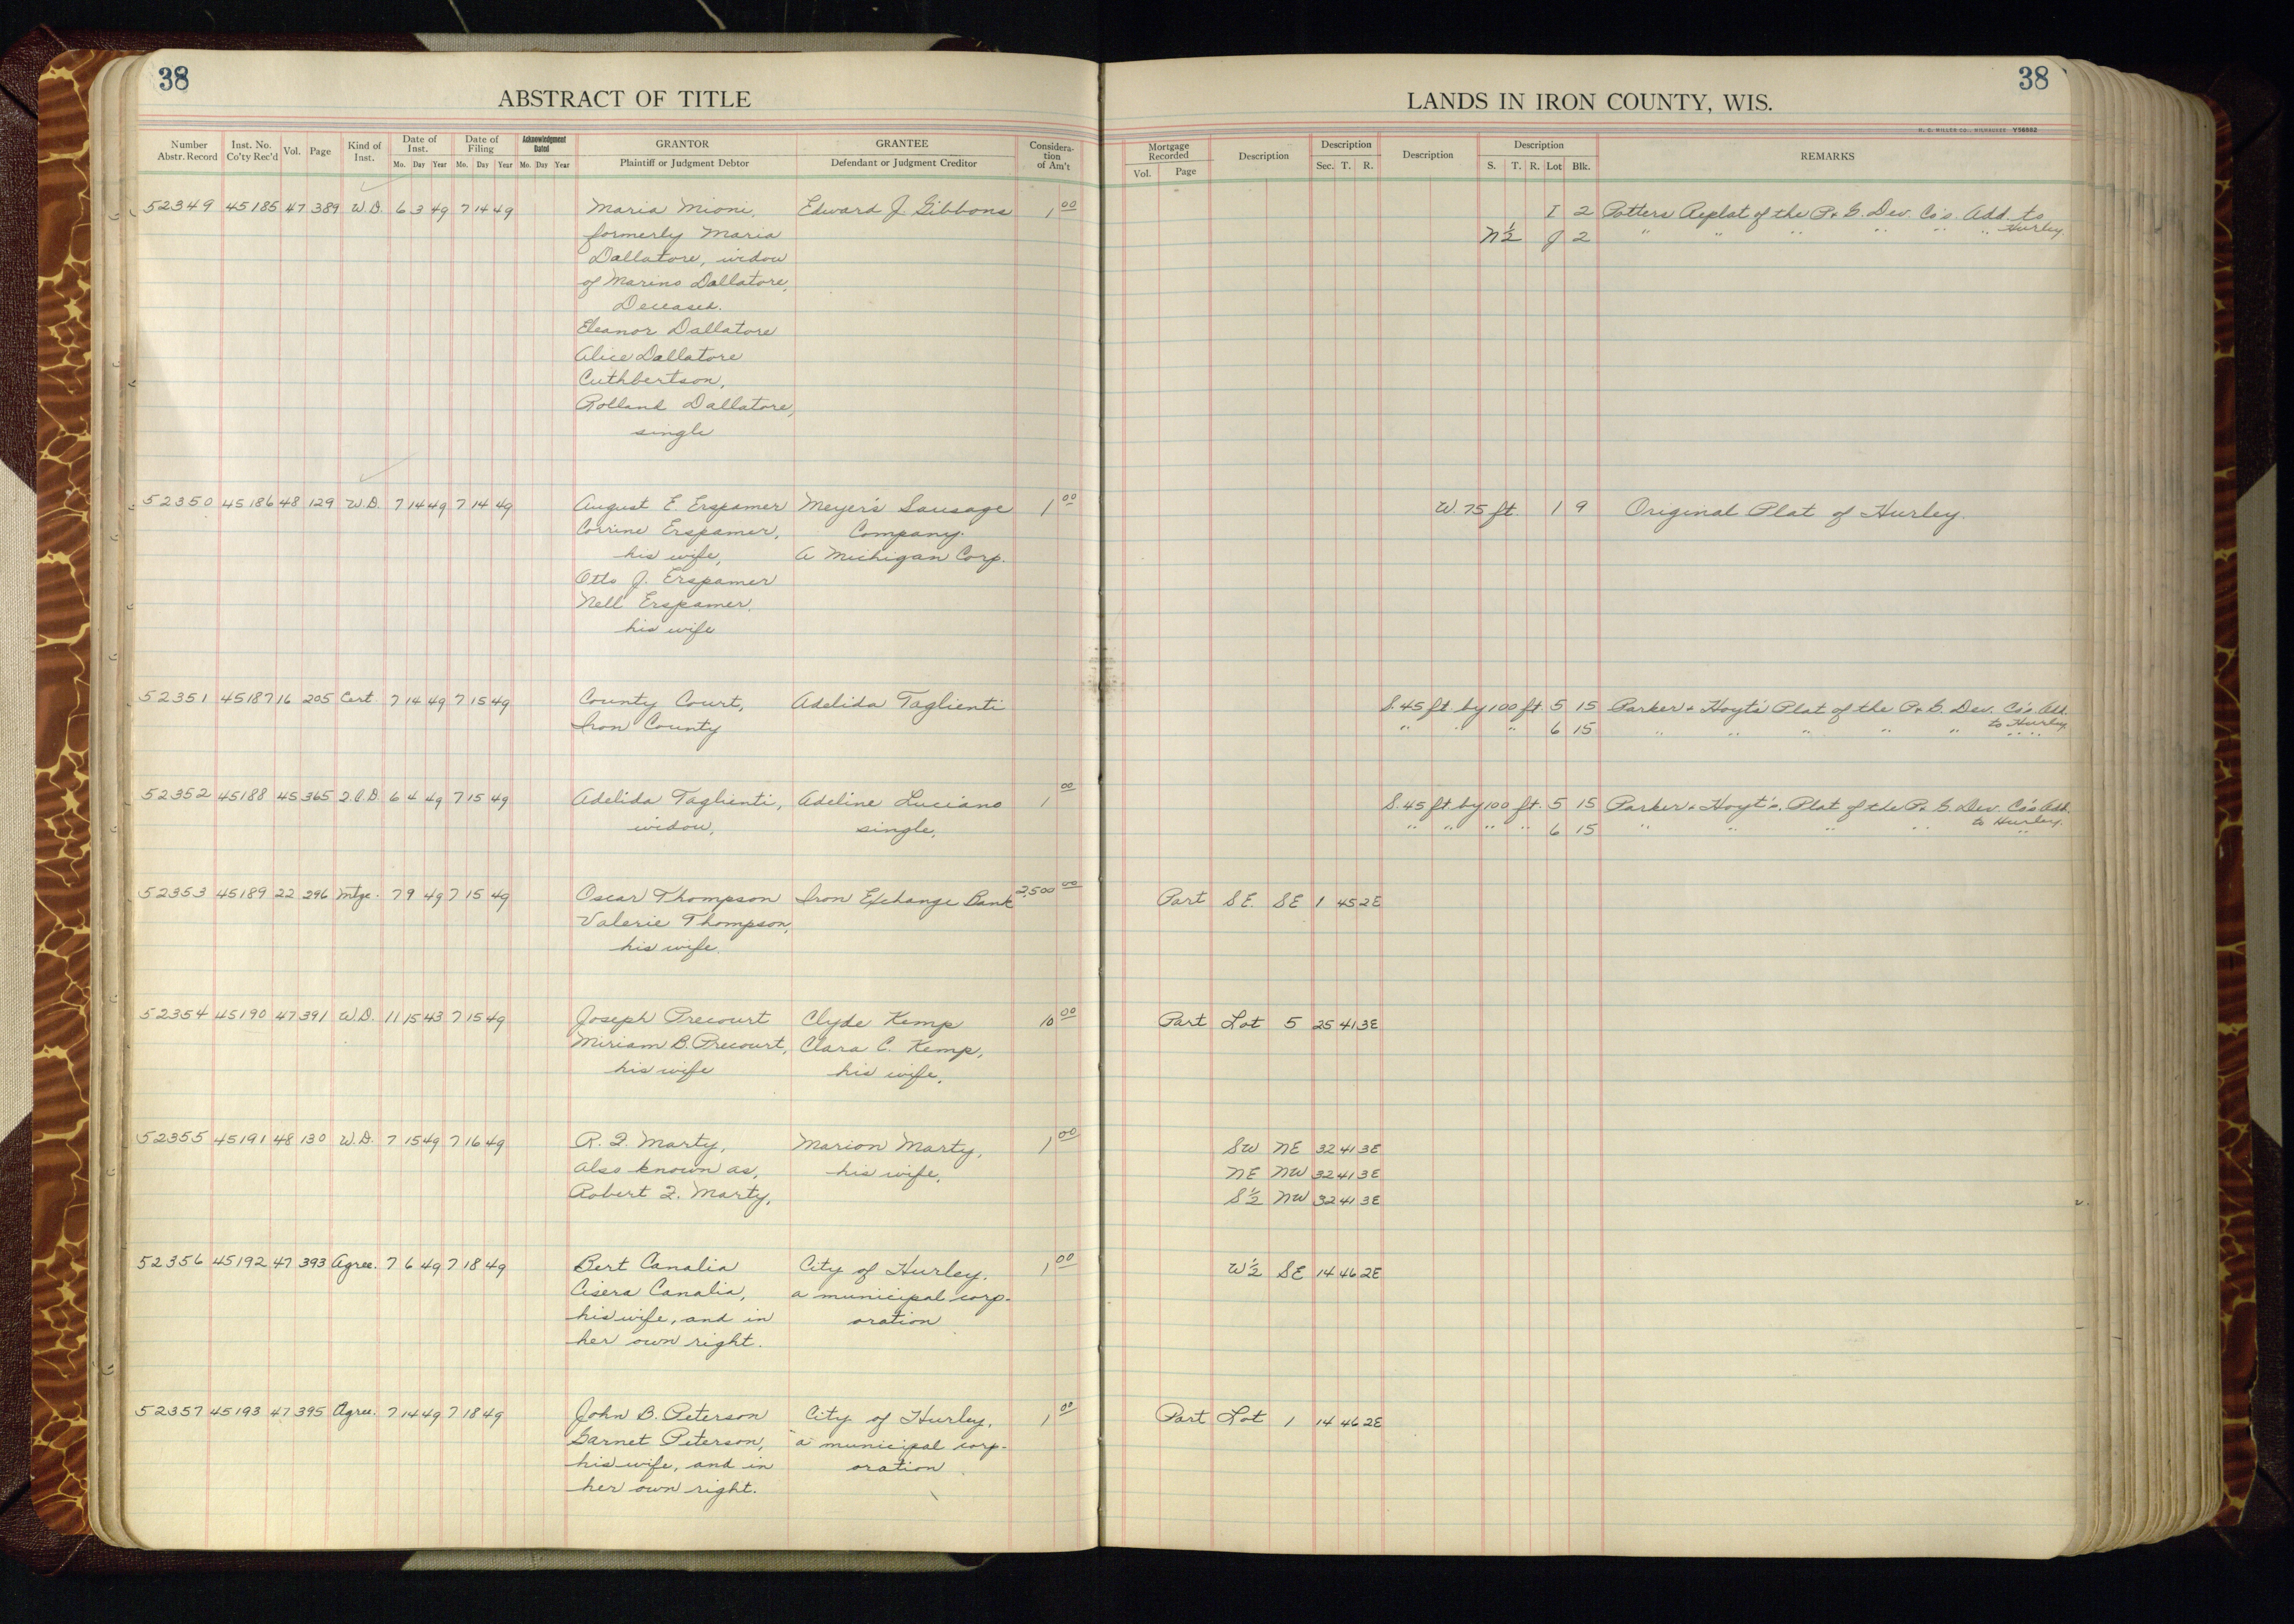 38
ABSTRACT OF TITLE
Number Abstr. Record Inst. No. Co'ty Rec'd Vol. Page Kind of Inst. Date of Inst. Mo. Day Year Date of Filing Mo. Day Year Acknowledgment Dated Mo. Day Year GRANTOR Plaintiff or Judgment Debtor GRANTEE Defendant or Judgment Creditor Considera-tion of Am't
52349 45185 47 389 W.D. 6 3 49 7 14 49 Maria Mioni, Edward J. Gibbons 1 00
formerly Maria
Dallatore, widow
of Marino Dallatore,
Deceased.
Eleanor Dallatore
Alice Dallatore
Cuthbertson,
Rolland Dallatore,
single
52350 45186 48 129 W.D. 7 14 49 7 14 49 August E. Erspamer Meyer's Sausage 1 00
Corrine Erspamer, Company.
his wife, A Michigan Corp.
Otto J. Erspamer
Nell Erspamer,
his wife
52351 45187 16 205 Cert 7 14 49 7 15 49 County Court, Adelida Taglienti
Iron County
52352 45188 45 365 Q.C.D. 6 4 49 7 15 49 Adelida Taglienti, Adeline Luciano 1 00
widow, single,
52353 45189 22 296 Mtge. 7 9 49 7 15 49 Oscar Thompson Iron Exchange Bank 2,500 00
Valerie Thompson,
his wife.
52354 45190 47 391 W.D. 11 15 43 7 15 49 Joseph Precourt Clyde Kemp 10 00
Miriam B. Precourt, Clara C. Kemp,
his wife his wife,
52355 45191 48 130 W.D. 7 15 49 7 16 49 R. F. Marty, Marion Marty, 1 00
also known as, his wife,
Robert F. Marty,
52356 45192 47 393 Agree. 7 6 49 7 18 49 Bert Canalia City of Hurley, 1 00
Cisera Canalia, a municipal corp-
his wife, and in oration
her own right.
52357 45193 47 395 Agree. 7 14 49 7 18 49 John B. Peterson City of Hurley, 1 00
Garnet Peterson, a municipal corp-
his wife, and in oration
her own right.
38
LANDS IN IRON COUNTY, WIS.
H. C. MILLER CO., MILWAUKEE Y56982
Mortgage Recorded Vol. Page Description Description Sec. T. R. Description Description S. T. R. Lot Blk. REMARKS
I 2 Potters Replat of the P. & G. Dev. Co's. Add. to
N 1/2 J 2 " " " " " " Hurley.
W. 75 ft. 1 9 Original Plat of Hurley.
S. 45 ft. by 100 ft. 5 15 Parker & Hoyt's Plat of the P. & G. Dev. Co's Add.
to Hurley.
" " " 6 15 " " " " " " "
S. 45 ft. by 100 ft. 5 15 Parker & Hoyt's. Plat of the P. & G. Dev. Co's Add.
to Hurley.
" " " " 6 15 " " " " "
Part SE. SE 1 45 2E
Part Lot 5 25 41 3E
SW NE 32 41 3E
NE NW 32 41 3E
S 1/2 NW 32 41 3E
W 1/2 SE 14 46 2E
Part Lot 1 14 46 2E